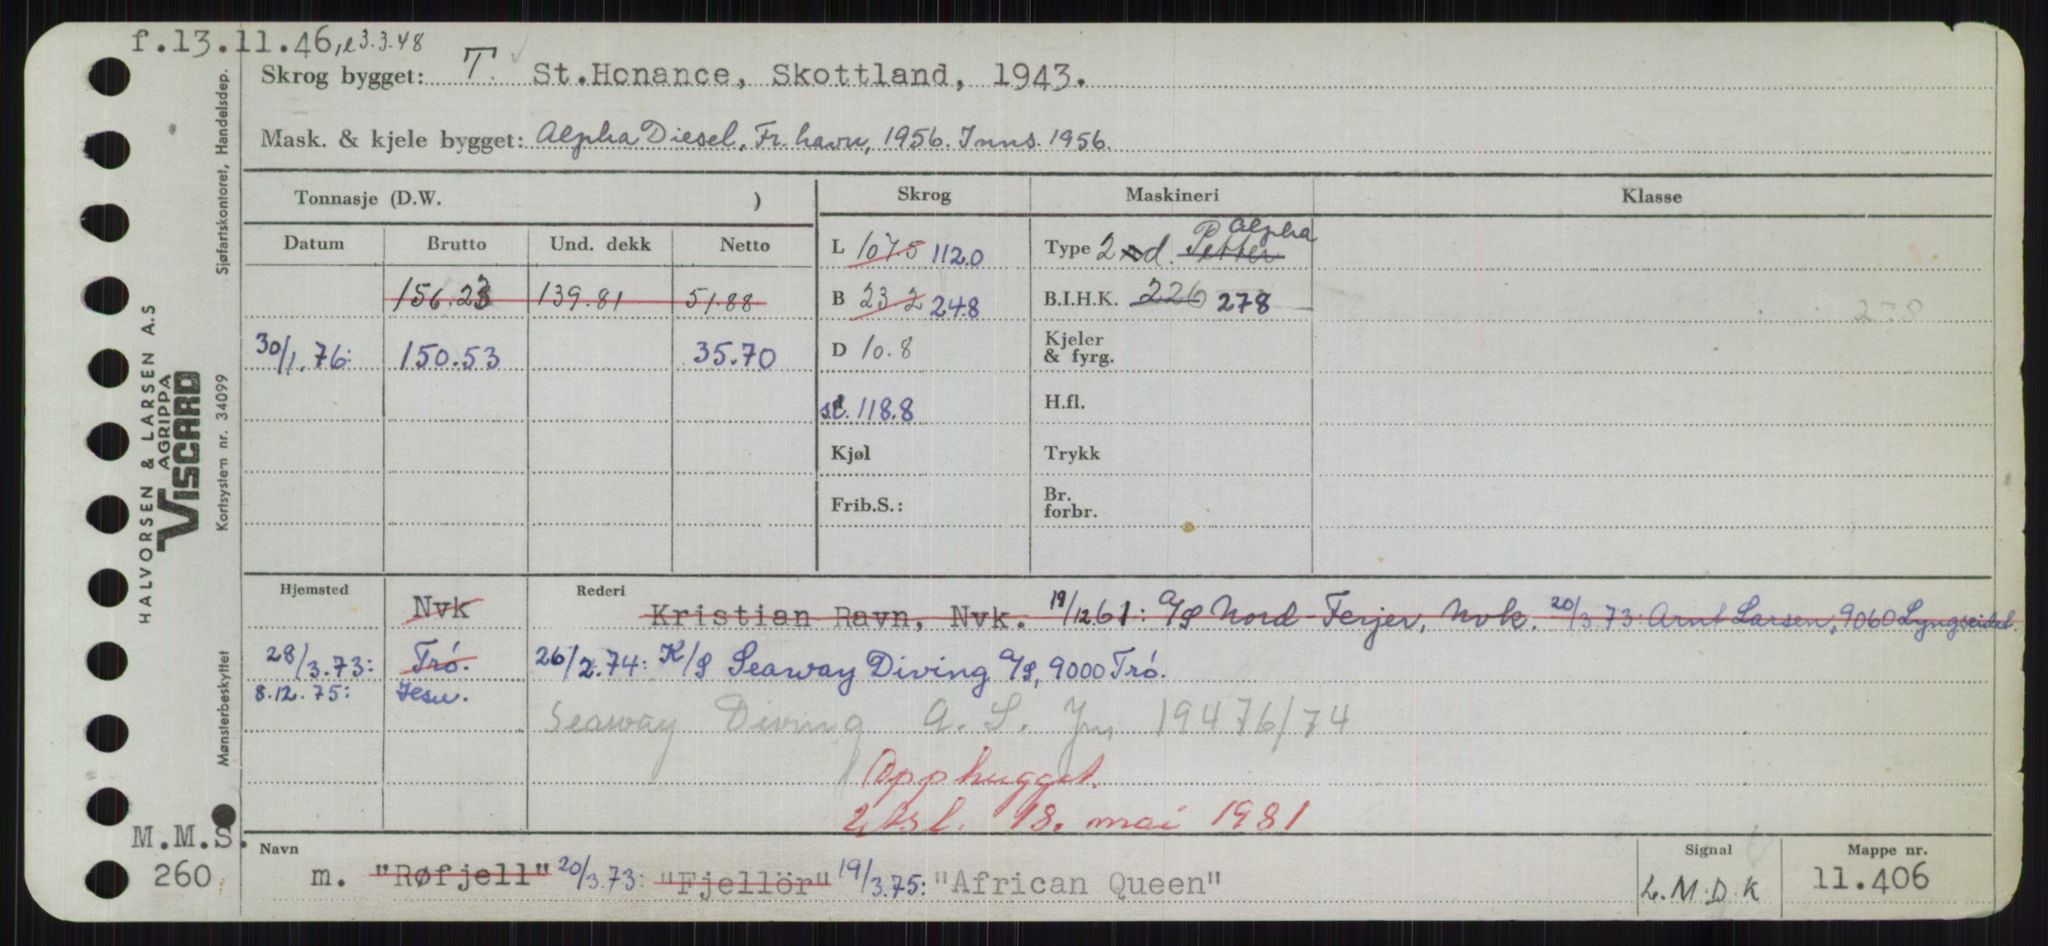 f.13.11.46, e 3.3.48
Skrog bygget: T. St.Honance, Skottland, 1943.
Mask. & kjele bygget: Alpha Diesel, Fr.havn, 1956. Inns. 1956.
Tonnasje (D.W. ) Skrog Maskineri Klasse
Datum Brutto Und. dekk Netto
L 107.5 112.0 Type 2 d. Petter Alpha
156.23 139.81 51.88 B 23.2 24.8 B.I.H.K. 226 278 278
30/1.76: 150.53 35.70 D 10.8 Kjeler & fyrg.
st. 118.8 H.fl.
Kjøl Trykk
Frib.S.: Br. forbr.
Hjemsted Rederi
Nvk Kristian Ravn, Nvk. 19/12.61: A/S Nord-Ferjer, Nvk. 20/3.73: Arnt Larsen, 9060 Lyngseidet.
28/3.73: Trö. 26/2.74: K/S Seaway Diving A/S, 9000 Trö.
8.12.75: Hsu.
Seaway Diving A.S. Jn 19476/74
Opphugget.
Utsl. 18. mai 1981
Navn Signal Mappe nr.
m. "Røfjell" 20/3.73: "Fjellör" 19/3.75: "African Queen" L.M.D.K 11.406
M.M.S.
260
HALVORSEN & LARSEN A.S
AGRIPPA
VISCARD
Sjøfartskontoret, Handelsdep.
Kortsystem nr. 34099
Mønsterbeskyttet